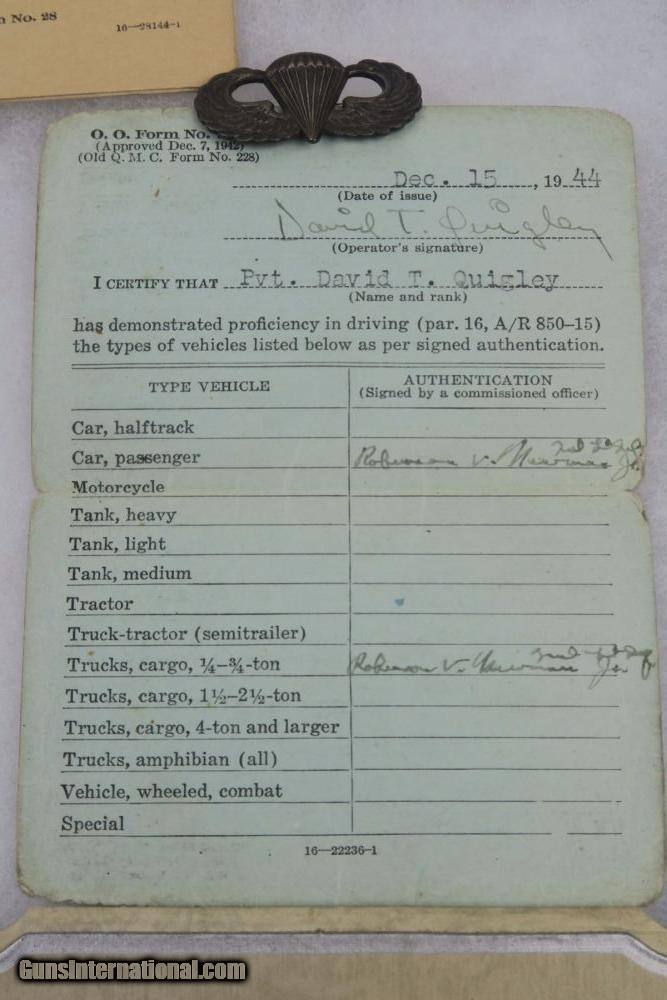 n No. 28
16—28144-1
O. O. Form No.
(Approved Dec. 7, 1942)
(Old Q. M. C. Form No. 228)
Dec. 15, 1944
(Date of issue)
David T. Quigley
(Operator's signature)
I CERTIFY THAT Pvt. David T. Quigley
(Name and rank)
has demonstrated proficiency in driving (par. 16, A/R 850–15)
the types of vehicles listed below as per signed authentication.
TYPE VEHICLE AUTHENTICATION
(Signed by a commissioned officer)
Car, halftrack
Car, passenger Robinson V. Jr.
Motorcycle
Tank, heavy
Tank, light
Tank, medium
Tractor
Truck-tractor (semitrailer)
Trucks, cargo, ¼–¾-ton Robinson V. Newman Jr.
Trucks, cargo, 1½–2½-ton
Trucks, cargo, 4-ton and larger
Trucks, amphibian (all)
Vehicle, wheeled, combat
Special
16—22236-1
GunsInternational.com